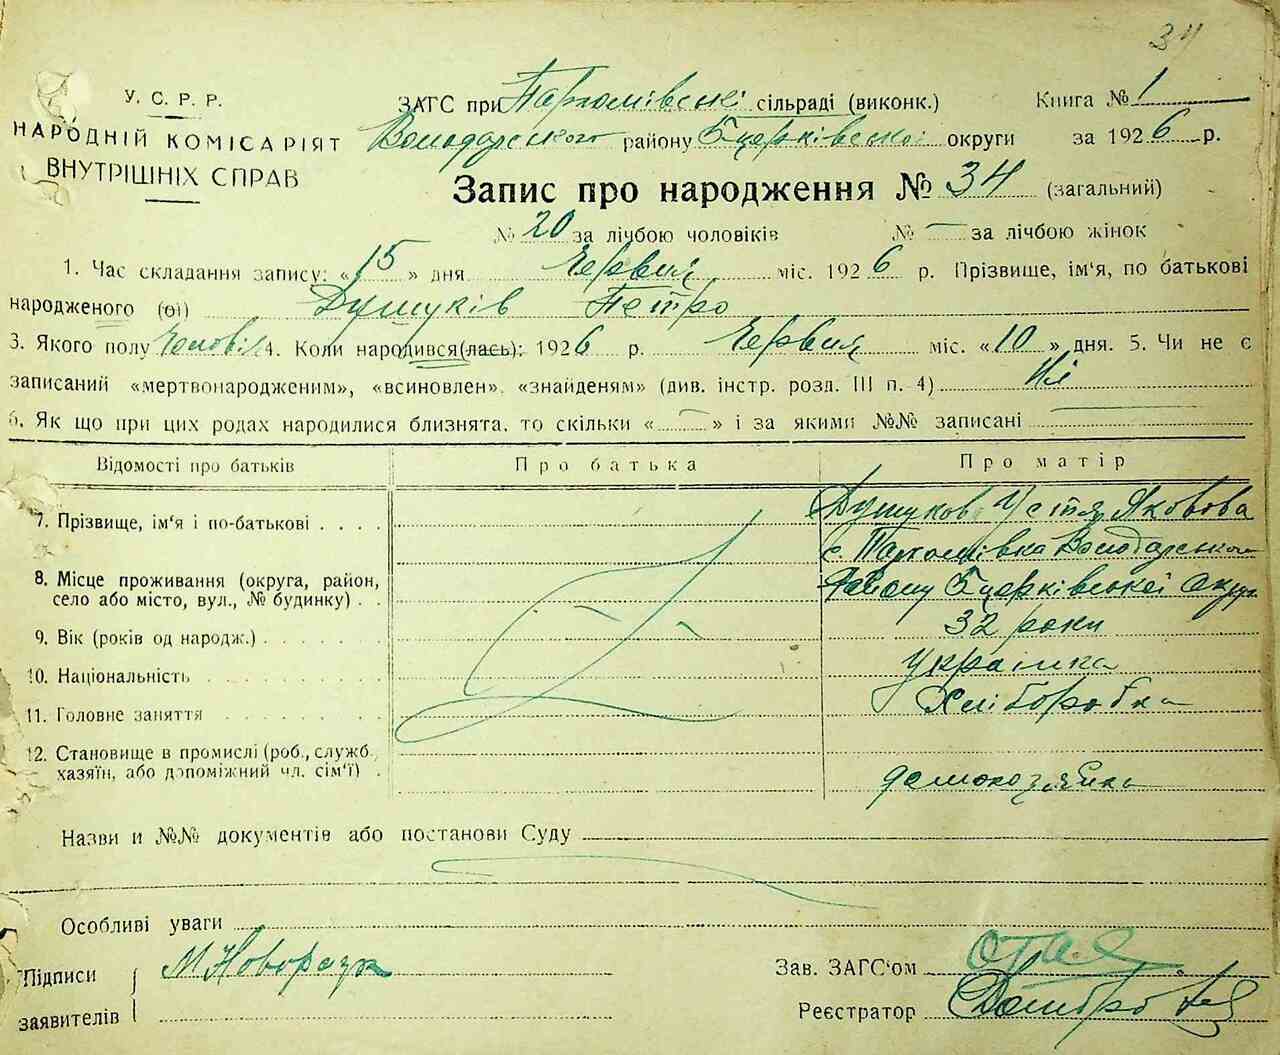 34
У. С. Р. Р.
НАРОДНІЙ КОМІСАРІЯТ
ВНУТРІШНІХ СПРАВ
ЗАГС при Пархомівські сільраді (виконк.) Книга № 1
Володарського району Бцерківської округи за 1926 р.
Запис про народження № 34 (загальний)
№ 20 за лічбою чоловіків № — за лічбою жінок
1. Час складання запису: «15» дня Червня міс. 1926 р. Прізвище, ім'я, по батькові
народженого (ої) Душуків Петро
3. Якого полу Чоловіч 4. Коли народився(лась): 1926 р. Червня міс. «10» дня. 5. Чи не є
записаний «мертвонародженим», «всиновлен», «знайденям» (див. інстр. розд. III п. 4) Ні
6. Як що при цих родах народилися близнята, то скільки «—» і за якими №№ записані —
Відомості про батьків Про батька Про матір
7. Прізвище, ім'я і по-батькові Душукова Устя Яковова
с. Пархомівка Володарського
8. Місце проживання (округа, район, село або місто, вул., № будинку) Району Бцерківської округ
9. Вік (років од народж.) 32 роки
10. Національність Українка
11. Головне заняття Хліборобка
12. Становище в промислі (роб., служб.,
хазяїн, або допоміжний чл. сім'ї) домохозяйка
Назви и №№ документів або постанови Суду
Особливі уваги
Підписи
заявителів
М
Зав. ЗАГС'ом
Реєстратор